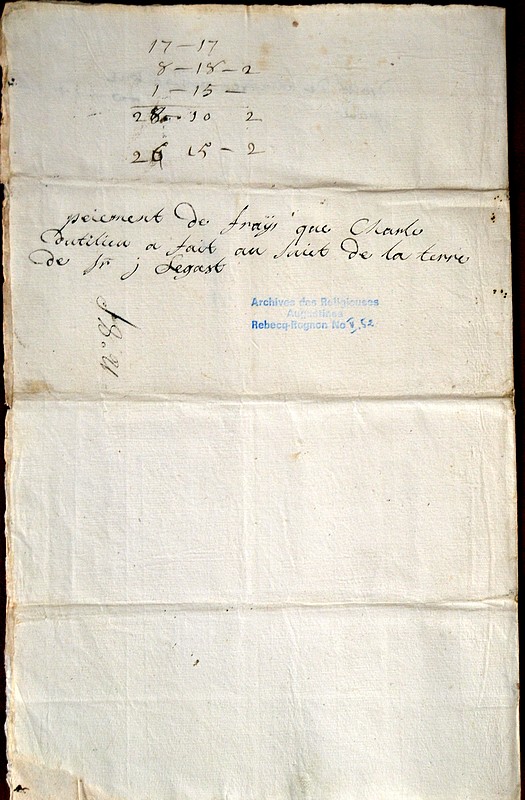 17 – 17
8 – 18 – 2
1 – 15 –
28 - 10 2
26 15 – 2
peiement de fraÿs que Charle
Dutilieu a fait au suiet de la terre
de Sr j Segast
Archives des Religieuses
Augustines
Rebecq-Rognon No